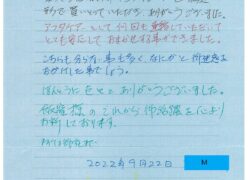 形で買いとっていただき、ありがとうございました。
アフターケアとして何回も連絡していただいて
とても安心しておまかせする事ができました。
こちらも分らない事も多く、なにかと御迷惑を
おかけした事でしょう。
ほんとうに色々とありがとうございました。
様のこれから御活躍を心より
お祈しております。
2022年9月22日
M